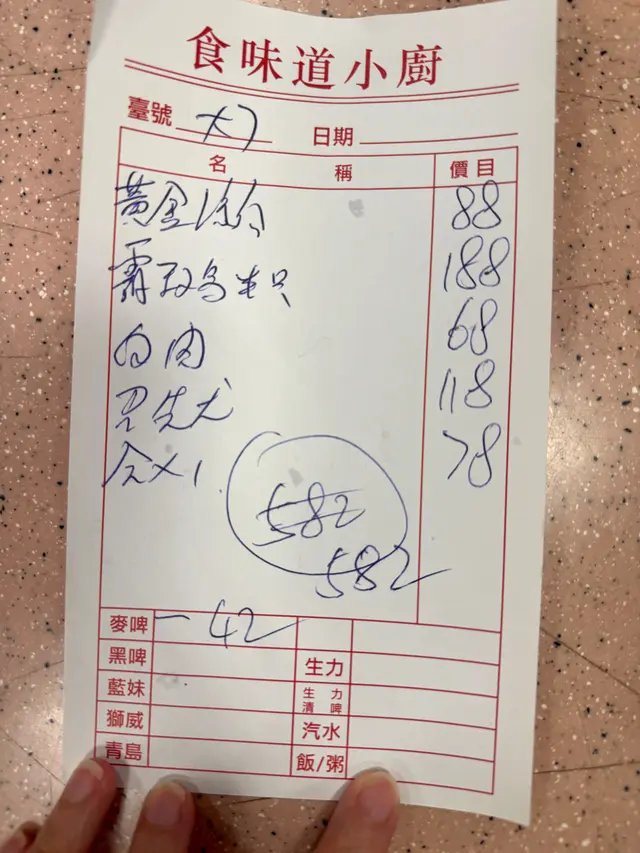 食味道小廚
臺號 大7 日期
名稱 價目
黃金 88
霸王鸡半只 188
白肉 68
118
78
582
582
麥啤 一 42
黑啤 生力
藍妹 生力清啤
獅威 汽水
青島 飯/粥